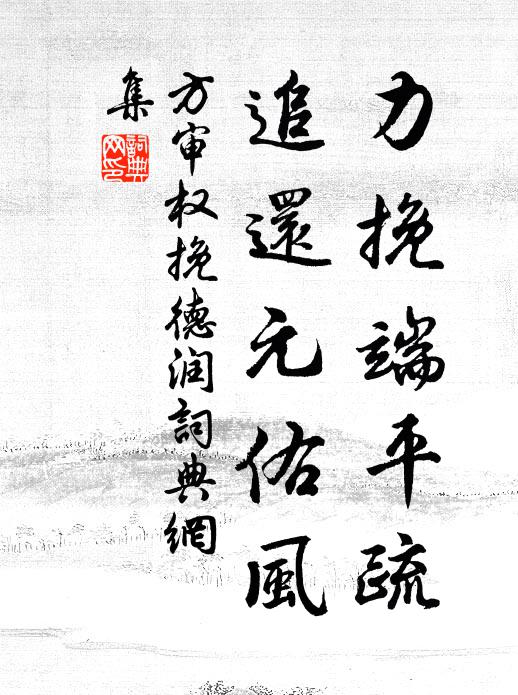 力挽端平疏
追還元佑風
方审权挽德润詞典網
集
詞典网印